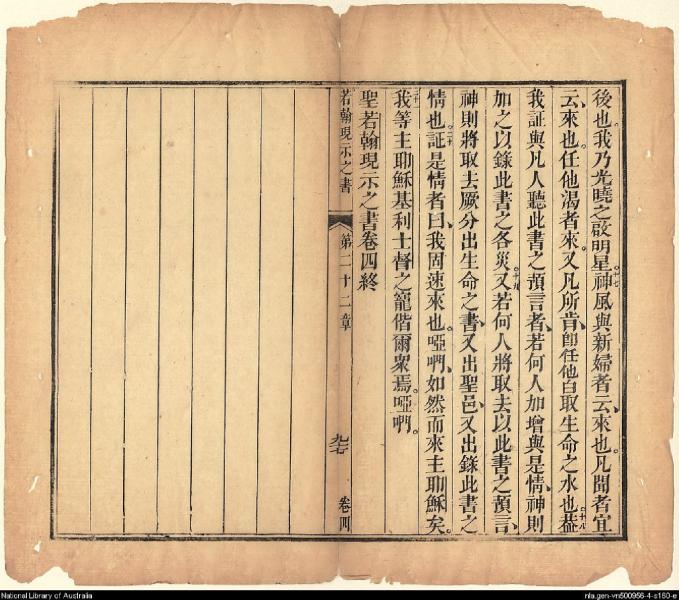 後也。我乃光曉之啟明星。十七神風與新婦者云、來也。凡聞者宜
云、來也。任他渴者來。又凡所肯、即任他白取生命之水也。十八蓋
我証與凡人聽此書之預言者、若何人加增與是情、神則
加之以錄此書之各災。十九又若何人將取去以此書之預言、
神則將取去厥分出生命之書、又出聖邑、又出錄此書之
情也。二十証是情者曰、我固速來也。啞們、如然而來主耶穌矣。
我等主耶穌基利士督之寵偕爾衆焉。啞們。
聖若翰現示之書卷四終
若翰現示之書
第二十二章
卷四
National Library of Australia
nla.gen-vn500956-4-s160-e